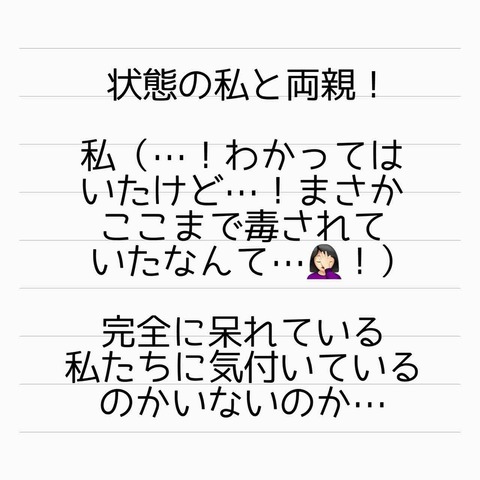 状態の私と両親！
私（…！わかっては
いたけど…！まさか
ここまで毒されて
いたなんて…🤦🏻‍♀️！）
完全に呆れている
私たちに気付いている
のかいないのか…